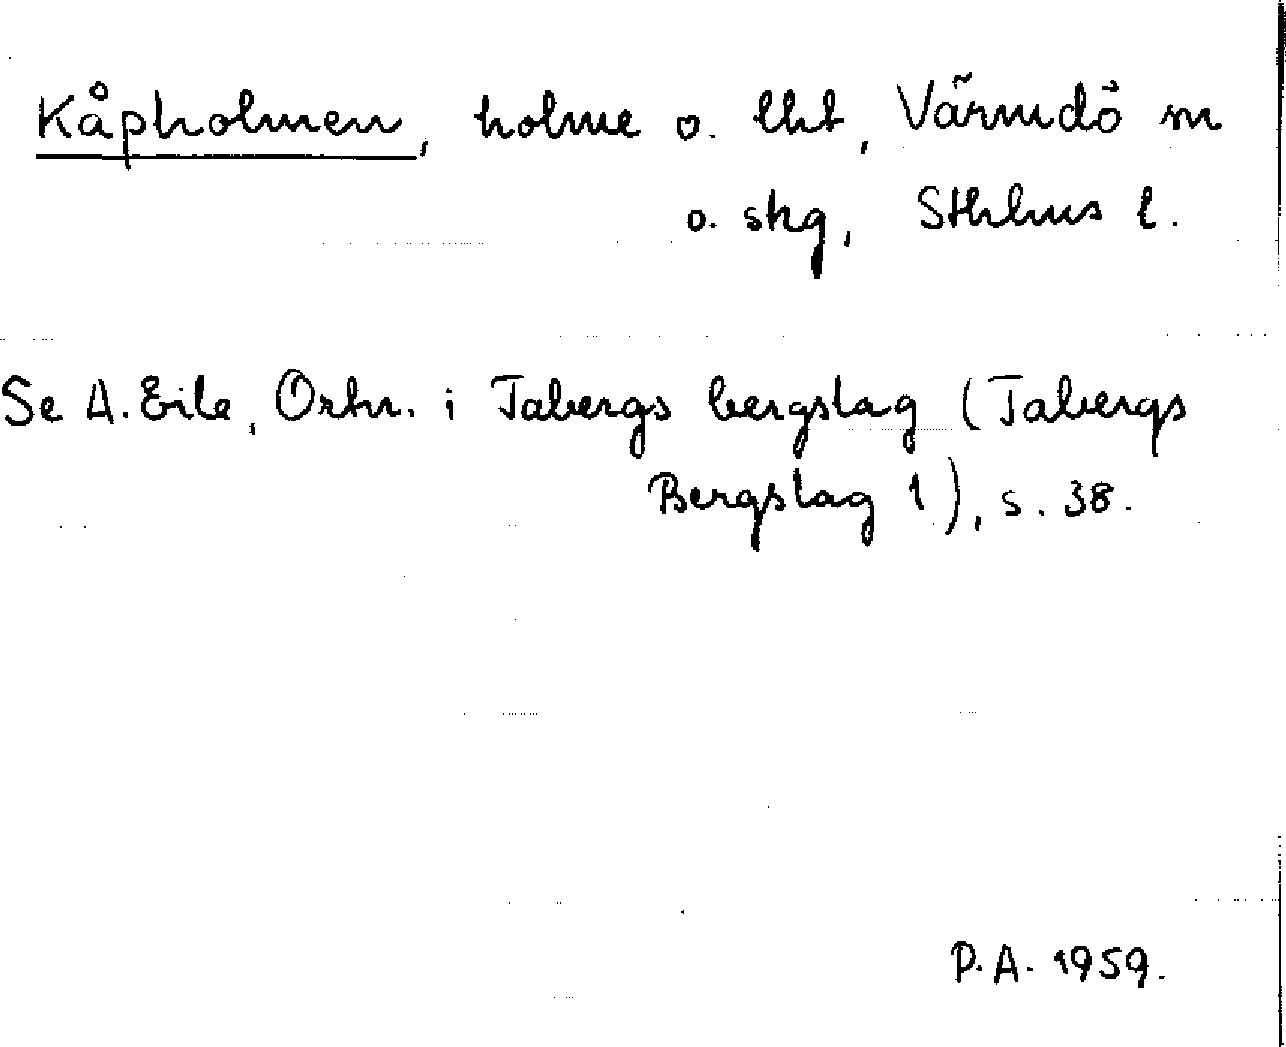 Kåpholmen, holme o. lht, Värmdö sn
o. skg, Sthlms l.
Se A. Eile, Ortn. i Tabergs bergslag (Tabergs
Bergslag 1), s. 38.
P.A. 1959.